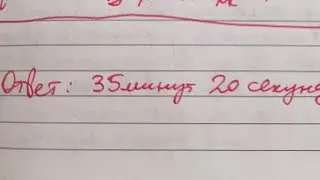 Ответ: 35 минут 20 секунд